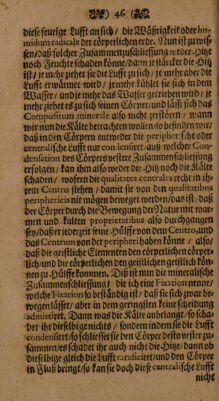 46
diese feurige Lufft an sich / die Wäßrigkeit oder hu-
midum radicale der cörperlichen rede. Nun ist zu wis-
sen / daß solcher Zusammenschliessung weder Hitz
noch Feuchte schaden könne / dann je stärcker die Hitz
ist / je mehr ziehet sie die Lufft zu sich / je mehr aber die
Lufft erwärmet wird / je mehr kühlet sie sich in dem
Wasser / und je mehr das Wasser getrieben wird / je
mehr ziehet es zu sich seinen Cörper / und lässt sich das
Compositum minerale also nicht zerstören / wann
wir nun die Kälte betrachten wollen / so befinden wir /
daß in den Cörpern entweder die peripherische oder
centralische Lufft nur condensiret / aus welcher Con-
densation des Cörpers vestere Zusammenschliessung
erfolget / kan ihm also weder die Hitz noch die Kälte
schaden / wofern die qualitates centrales recht in ih-
rem Centro stehen / damit sie von den qualitatibus
periphericis nit mögen beweget werden / das ist / daß
der Cörper durch die Bewegung der Natur mit war-
men und kalten proprietatibus also durchgangen
sey / daß er jederzeit seine Hülffe von dem Centro, und
das Centrum von der peripheri haben könne / also /
daß die geistliche Elementen den cörperlichen cörper-
lich / und die cörperlichen den geistlichen geistlich kön-
nen zu Hülffe kommen. Diß ist nun die mineralische
Zusammenschliessung / die ich eine Fixation nenne /
welche Fixation so beständig ist / daß sie sich zwar be-
wegen lässet / aber in dem geringsten keine scheidung
admittiret. Dann was die Kälte anbelangt / so scha-
det ihr dieselbige nichts / sondern indem sie die Lufft
condensiret / so schliesset sie den Cörper desto vester zu-
sammen / es schadet ihr auch nicht die Hitze / dann ob
dieselbige gleich die Lufft rareficiret / und den Cörper
in Fluß bringt / so kan sie doch diese centralische Lufft
nicht